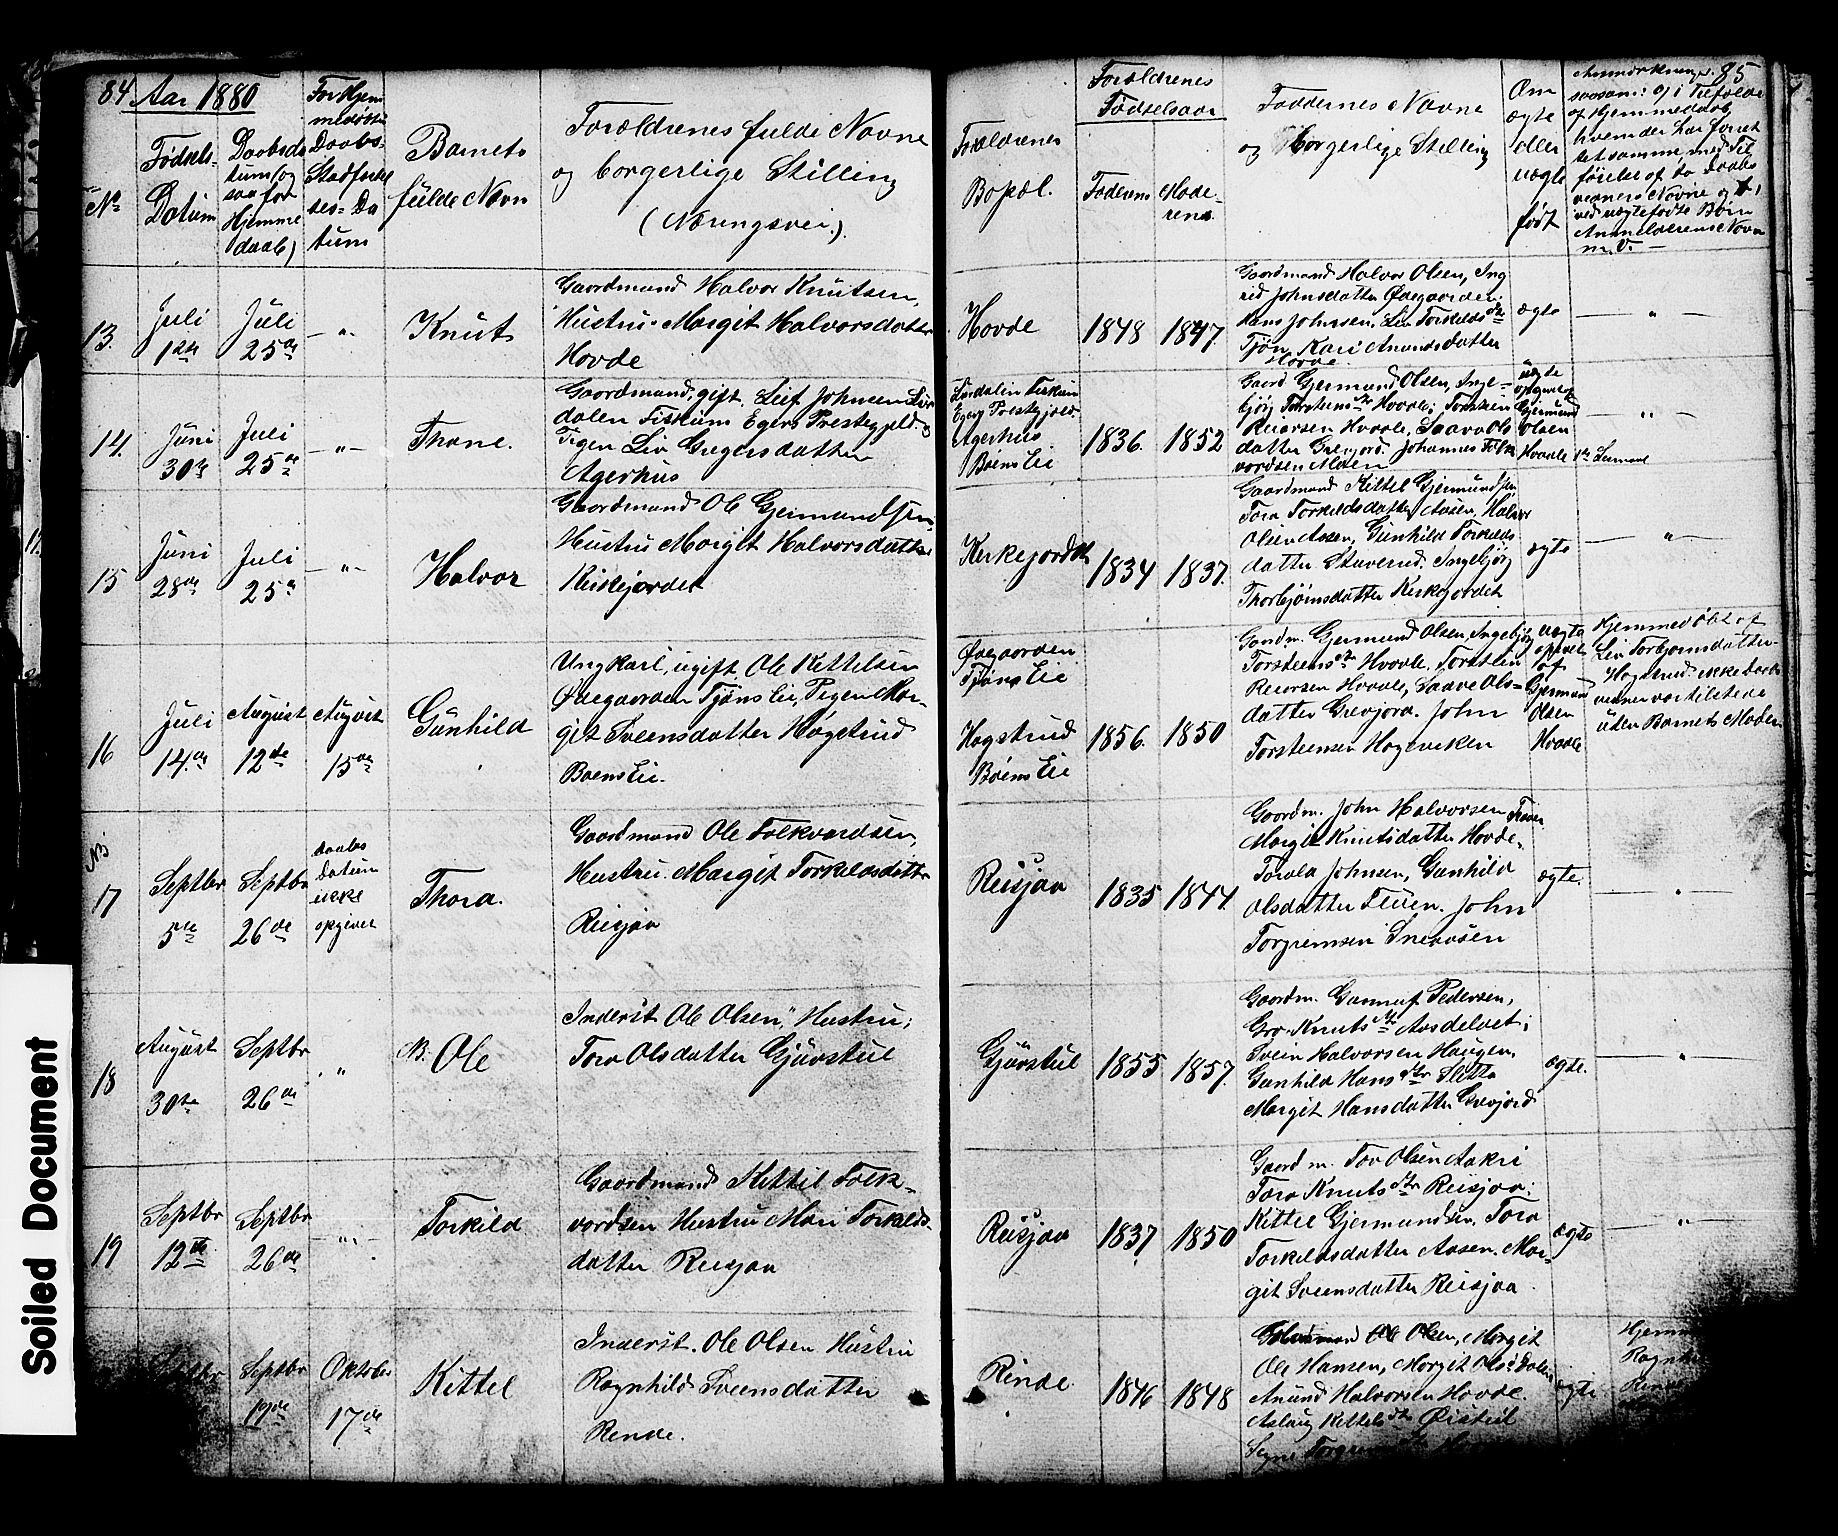 84 Aar 1880
No
Fødsels-
Datum
Daabsda
tum (og
saa for
Hjemme
daab)
For Hjem
medøbte
Daabs-
Stadfæstel
ses-Da
tum
Barnets
fulde Navn
Forældrenes fulde Navne
og borgerlige Stilling
(Næringsvei.)
Forældrenes
Bopæl.
Forældrenes
Fødselsaar
Faderens
Mode-
rens
Faddernes Navne
og Borgerlige Stilling
Om
ægte
eller
uægte
født
Anmærkninger. 85
saasom: o/i Tilfælde
af Hjemmedaab
hvem der har forret
tet samme, med Til
føielse af to Daabs
vidners Navne og
ved uægtefødte Børn
Anmelderens Navn
m. V.
13.
Juli
12te
Juli
25de
— " —
Knut
Gaardmand Halvor Knutsen,
Hustru Margit Halvorsdatter
Hovde
Hovde
1848
1847.
Gaardmand Halvor Olsen, Ing
rid Johnsdatter Ødegaarden.
Hans Johnsen, Liv Torkildsdtr
Tjøn, Kari Anundsdatter
Hovde
ægte
— " —
14.
Juni
30te
Juli
25de
— " —
Thone.
Gaardmand, gift, Leif Johnsen Lur
dalen Fiskum Egers Prestegjeld og
Pigen Liv Gregersdatter
Agerhus
Lurdalen Fiskum
Egers Prestegjeld.
Agerhus
Bøens Eie
1836.
1852
Gaard Gjermund Olsen, Inge-
bjørg Torsteensdtr Hvaale; Torstein
Reiersen Hvaale, Saave Ols
datter Grevjord. Johannes Folk
vordsen Moen
uægte
opgivet af
Gjermund
Olsen
Hvaale
— " —
15
Juni
28de
Juli
25de
— " —
Halvor
Gaardmand Ole Gjermundsen,
Hustru Margit Halvorsdatter
Kirkejordet
Kirkejordet
1834
1837.
Gaardmand Kittel Gjermundsen
Tora Torkildsdatter Aasen, Halvor
Olsen Aasen, Gunhild Torkilds
datter Staverud. Ingebjørg
Thorbjørnsdatter Kirkejordet
ægte
— " —
16
Juli
14.de
August
12de
August
15de
Gunhild
Ungkarl, ugift Ole Kittelsen
Ødegaarden Tjøns Eie, Pigen Mar-
git Sveensdatter Høgstrud
Bøens Eie.
Ødegaarden
Tjøns Eie
Høgstrud
Bøens Eie
1856.
1850
Gaardm. Gjermund Olsen, Ingebjørg
Torsteensdtr Hvaale. Torstein
Reiersen Hvaale, Saave Ols-
datter Grevjord. John
Torsteensen Hogeviken
uægte
opgivet
af
Gjermund
Olsen
Hvaale
Hjemmedøbt af
Liv Torbjørnsdatter
Høgstrud. ikke Daabs
vidner var tilstede
uden Barnets Moder
NB
17
Septbr
5te
Septbr
26de
Daabs
Datum
ikke
opgivet
Thora.
Gaardmand Ole Folkvardsen,
Hustru. Margit Torkildsdatter
Reisjaa
Reisjaa
1835
1844.
Gaardm. John Halvorsen
Margit Knutsdatter Hovde.
Torola Johnsen, Gunhild
Olsdatter Fluen. John
Torgrimsen Sneaasen
ægte.
— " —
18
August
30te
Septbr
26de
"
NB. Ole
Inderst Ole Olsen, Hustru;
Tora Olsdatter Gjuvstul
Gjuvstul
1855
1857.
Gaardm. Gunnuf Pedersen,
Gro Knutsdtr Avsdelvet;
Svein Halvorsen Haugen,
Gunhild Hansdtr Sletta
Margit Hansdatter Grevjord
ægte.
— " —
19
Septbr
12te
Septbr
26de
— " —
Torkild
Gaardmand Kittil Folk-
vordsen Hustru Mari Torkilds-
datter Reisjaa
Reisjaa
1837
1850
Gaard m. Tov Olsen Aakri
Tora Knutsdtr Reisjaa;
Kittel Gjermundsen, Tora
Torkildsdatter Aasen. Mar-
git Sveensdatter Reisjaa.
ægte
— " —
Septbr
19de
Oktober
17de
Kittel
Inderst. Ole Olsen Hustru
Ragnhild Sveensdatter
Rende.
Rinde.
1846
1848
Ole Olsen, Margit
Ole Hansen, Margit Olsdatter
Anund Halvorsen Hovde.
Aslaug Kittelsdtr Øistul
Signe
ægte
Hjemm
Ragnh
Rinde
Soiled Document